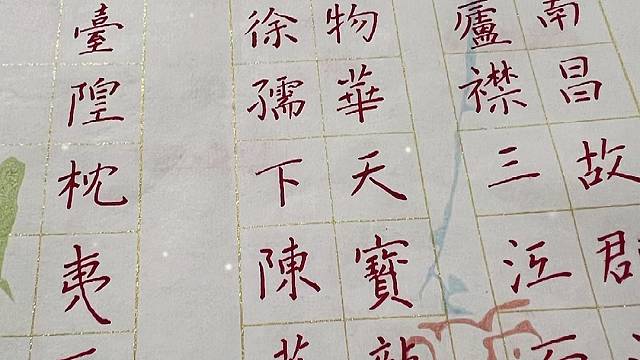 南昌故
廬襟三江
物華天寶
徐孺下陳
臺隍枕夷